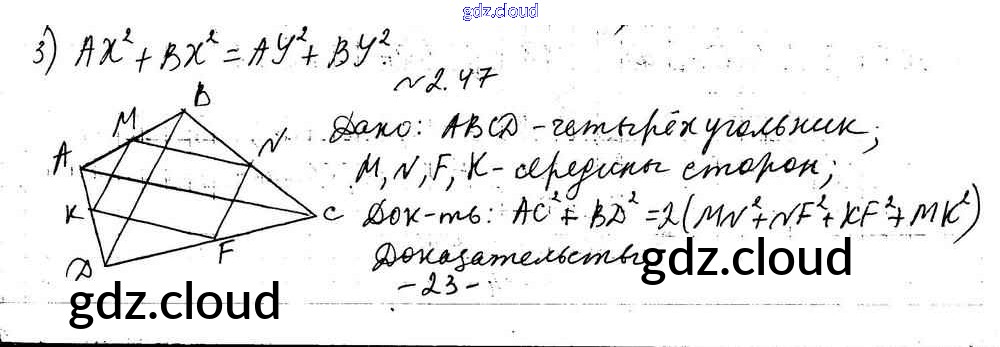 gdz.cloud
3) AX² + BX² = AY² + BY².
№ 2.47
Дано: ABCD - четырёхугольник;
M, N, F, K - середины сторон;
Док-ть: AC² + BD² = 2(MN² + NF² + KF² + MK²)
Доказательство
- 23 -
B
M
A
N
K
C
F
D
gdz.cloud
gdz.cloud